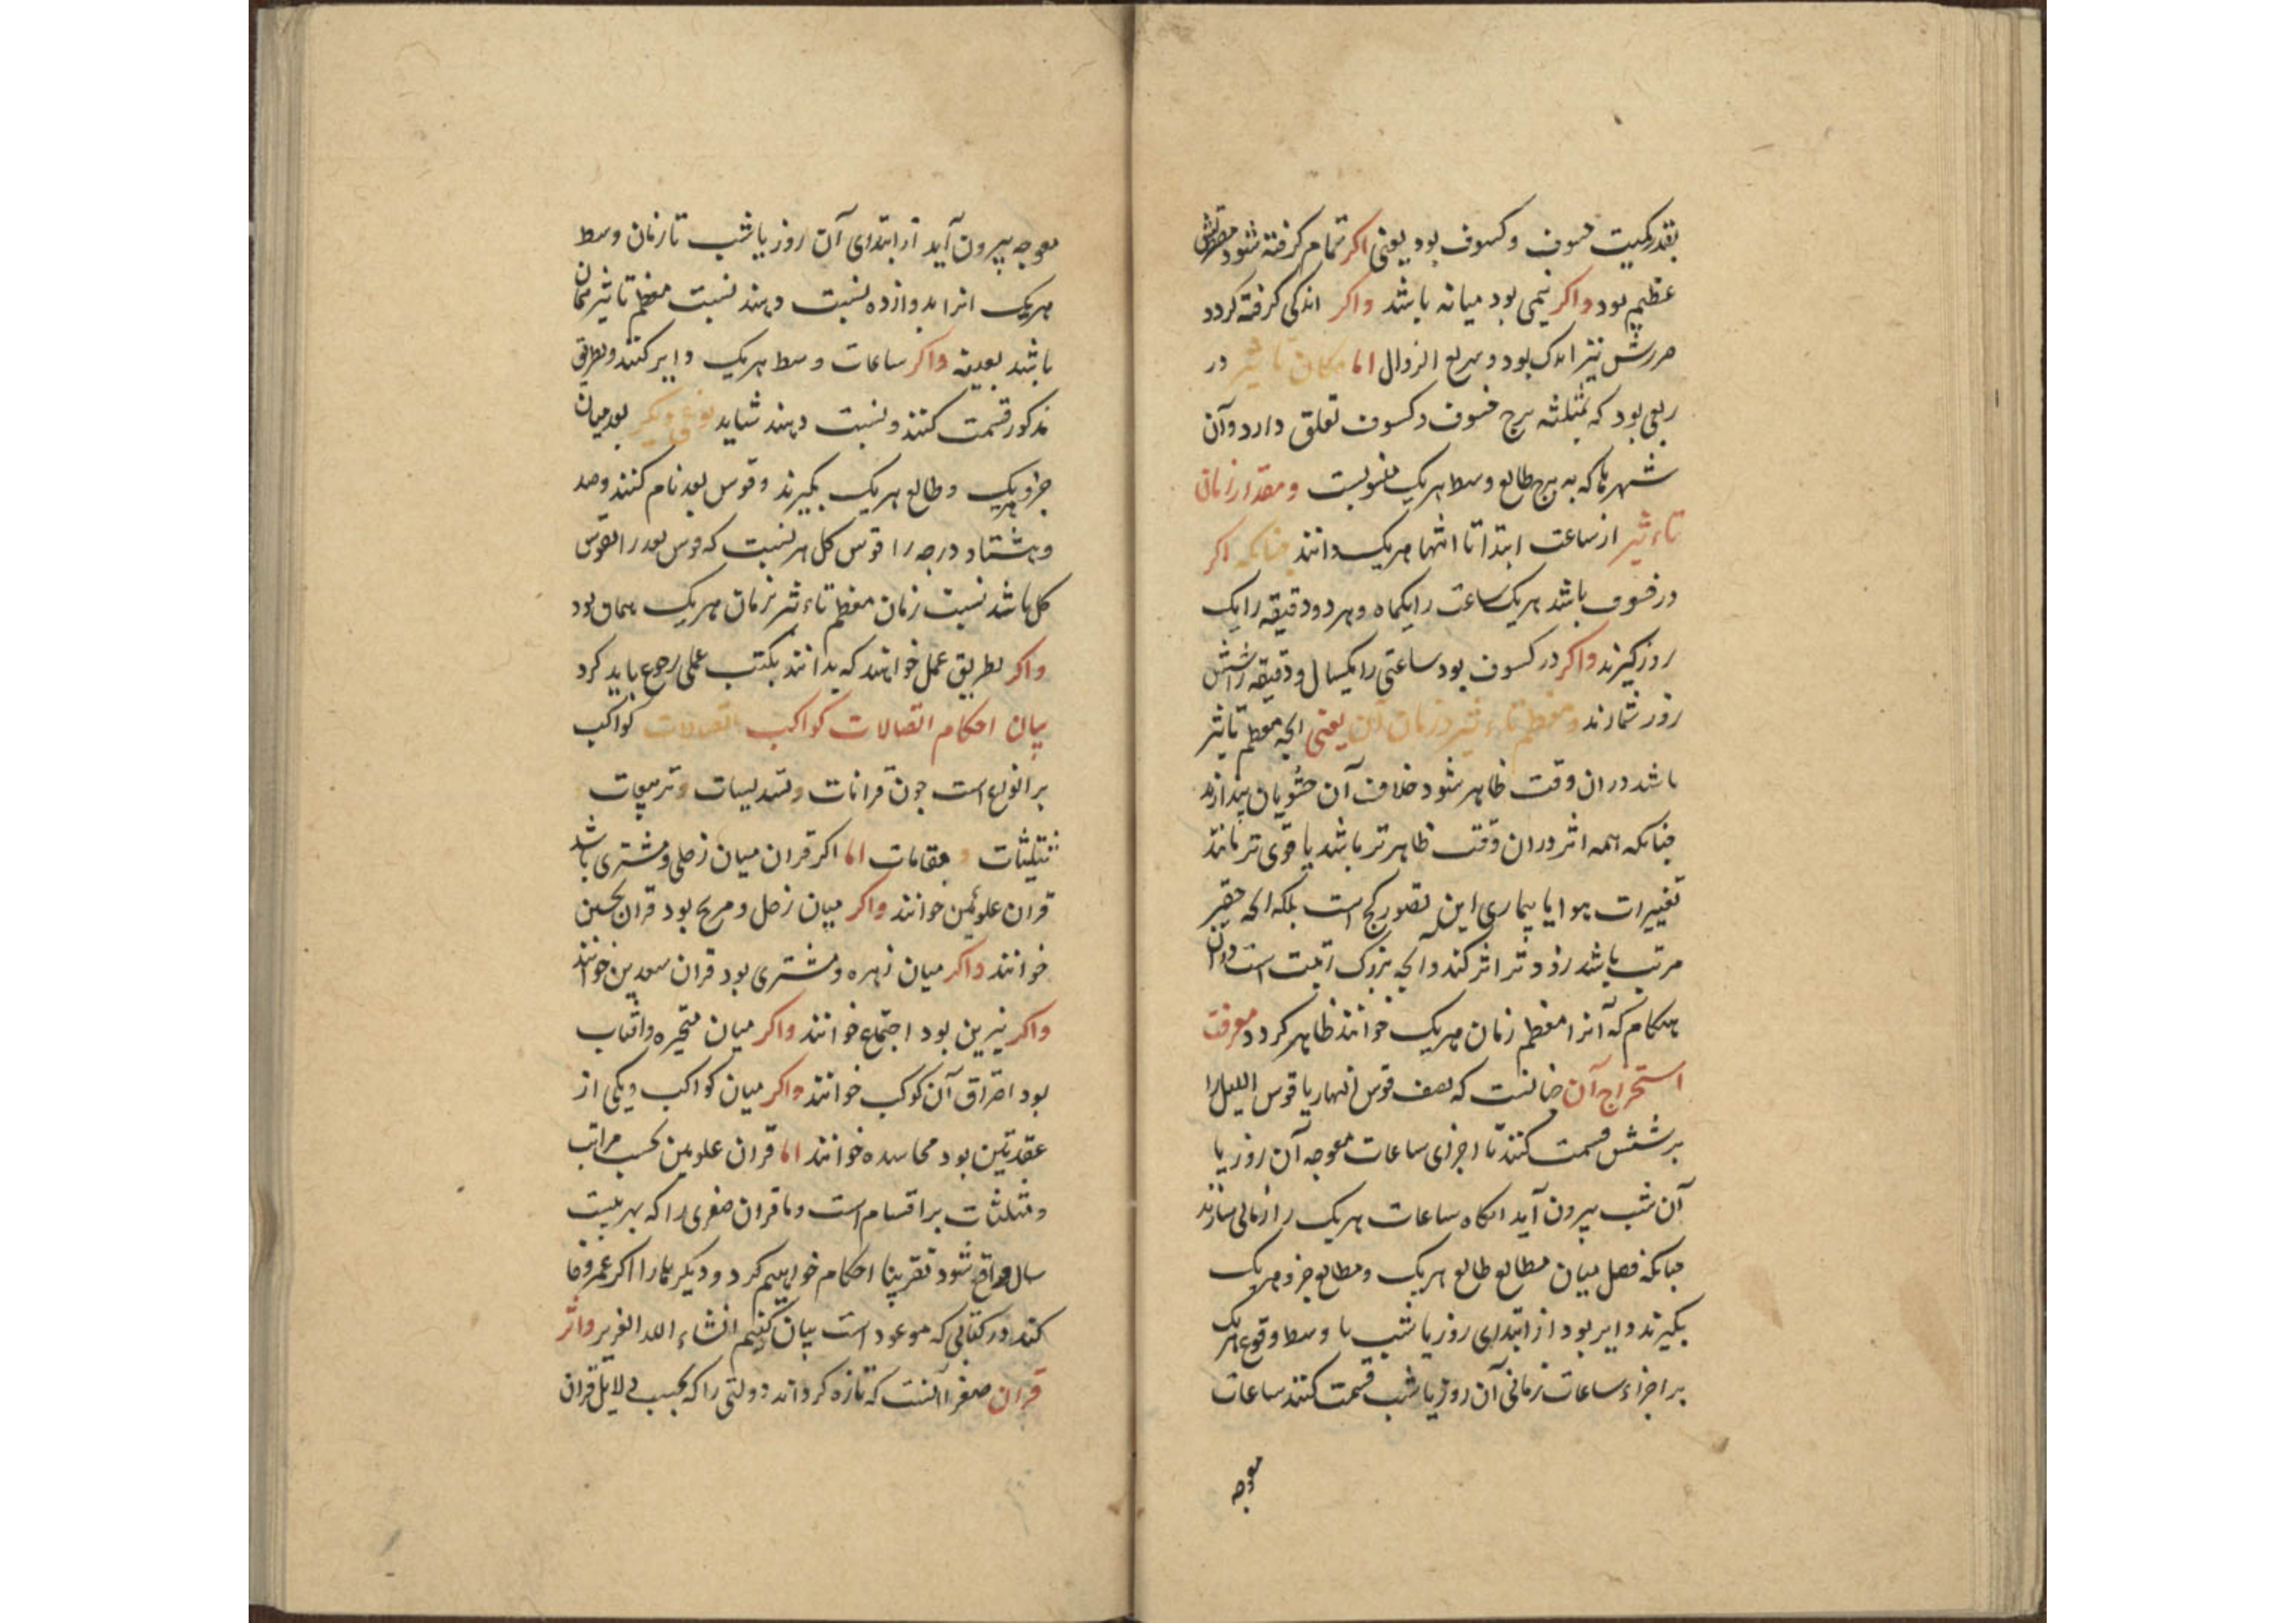 بقدر کمیت خسوف و کسوف بود یعنی اکر تمام کرفته شود
عظیم بود واکر نیمی بود میانه باشد واکر اندکی کرفته کردد
ضررش نیز اندک بود و سریع الزوال اما مکان تاثیر در
ربعی بود که بمثلثه برج خسوف و کسوف تعلق دارد و آن
شهرها که به برج طالع وسط هریک منسوبست ومقدار زمان
تاءثیر از ساعت ابتدا تا انتها هریک دانند چنانکه اکر
در خسوف باشد هریک ساعت را یکماه و هر دو دقیقه را یک
روز کیرند واکر در کسوف بود ساعتی را یکسال و دقیقه را شش
روز شمارند ومعظم تاءثیر در زمان آن یعنی انچه معظم تاثیر
باشد در ان وقت ظاهر شود خلاف آن حشویان پندارند
چنانکه همه اثر در ان وقت ظاهرتر باشد یا قوی تر مانند
تغییرات هوا یا بیماری این تصور کج است بلکه انچه حقیر
مرتب باشد زودتر اثر کند و انچه بزرک
هنکام که آنرا معظم زمان هریک خوانند ظاهر کردد معرفت
استخراج آن چنانست که نصف قوس النهار یا قوس اللیل را
بر شش قسمت کنند تا اجزای ساعات معوجه آن روز یا
آن شب بیرون آید انکاه ساعات هریک را زمانی سازند
چنانکه فصل میان مطالع طالع هریک و مطالع جزو هریک
بکیرند دایر بود از ابتدای روز یا شب تا وسط وقوع هریک
بر اجزاء ساعات زمانی آن روز یا شب قسمت کنند ساعات
معوجه
معوجه بیرون آید از ابتدای آن روز یا شب تا زمان وسط
هریک انرا بدوازده نسبت دهند نسبت معظم تاثیر همان
باشد بعینه واکر ساعات وسط هریک دایر کنند و بطریق
مذکور قسمت کنند و نسبت دهند شاید نوعی دیکر بعد میان
جزو هریک و طالع هریک بکیرند و قوس بعد نام کنند و صد
و هشتاد درجه را قوس کل هر نسبت که قوس بعد را بقوس
کل باشد نسبت زمان معظم تاءثیر بزمان هریک همان بود
واکر بطریق عمل خواهند که بدانند بکتب عملی رجوع باید کرد
بیان احکام اتصالات کواکب اتصالات کواکب
بر انواع است چون قرانات و تسدیسات و تربیعات
و تثلیثات و مقابلات اما اکر قران میان زحل و مشتری باشد
قران علویین خوانند واکر میان زحل و مریخ بود قران نحسین
خوانند واکر میان زهره و مشتری بود قران سعدین خوانند
واکر نیرین بود اجتماع خوانند واکر میان متحیره و افتاب
بود احتراق آن کوکب خوانند واکر میان کواکب و یکی از
عقدتین بود محاسده خوانند اما قران علویین بحسب مراتب
و مثلثات بر اقسام است و ما قران صغری را که بهر بیست
سال واقع شود تقریبا احکام خواهیم کرد و دیکرها را اکر عمر وفا
کند در کتابی که موعود است بیان کنیم انشاء الله العزیز واثر
قران صغرا آنست که تازه کرداند دولتی را که بحسب دلایل قران